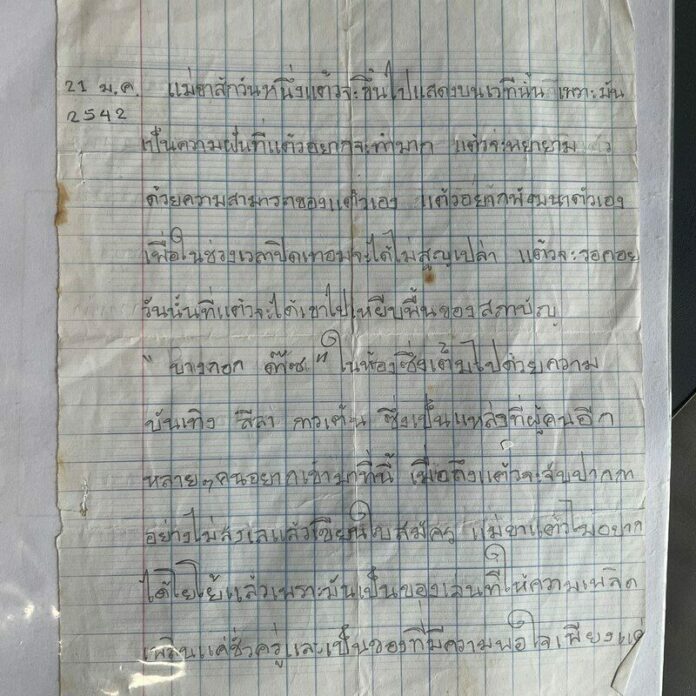 21 ม.ค. แม่ขาสักวันหนึ่งแต้วจะขึ้นไปแสดงบนเวทีนั้น เพราะมัน
2542
เป็นความฝันที่แต้วอยากจะทำมาก แต้วจะพยายาม
ด้วยความสามารถของแต้วเอง แต้วอยากพัฒนาตัวเอง
เพื่อในช่วงเวลาปิดเทอมจะได้ไม่สูญเปล่า แต้วจะรอคอย
วันนั้นที่แต้วจะได้เข้าไปเหยียบพื้นของสถาบัญ
" บางกอก ด๊าซ " ในห้องซึ่งเต็มไปด้วยความ
บันเทิง ลีลา การเต้น ซึ่งเป็นแหล่งที่ผู้คนอีก
หลายๆคนอยากเข้ามาที่นี้ เมื่อถึงแต้วจะจับปากกา
อย่างไม่ลังเลแล้วเขียนใบสมัคร แม่ขาแต้วไม่อยาก
ได้โยโย้แล้วเพราะมันเป็นของเล่นที่ให้ความเพลิด
เพลินแค่ชั่วครู่และเป็นของที่มีความพอใจเพียงแค่